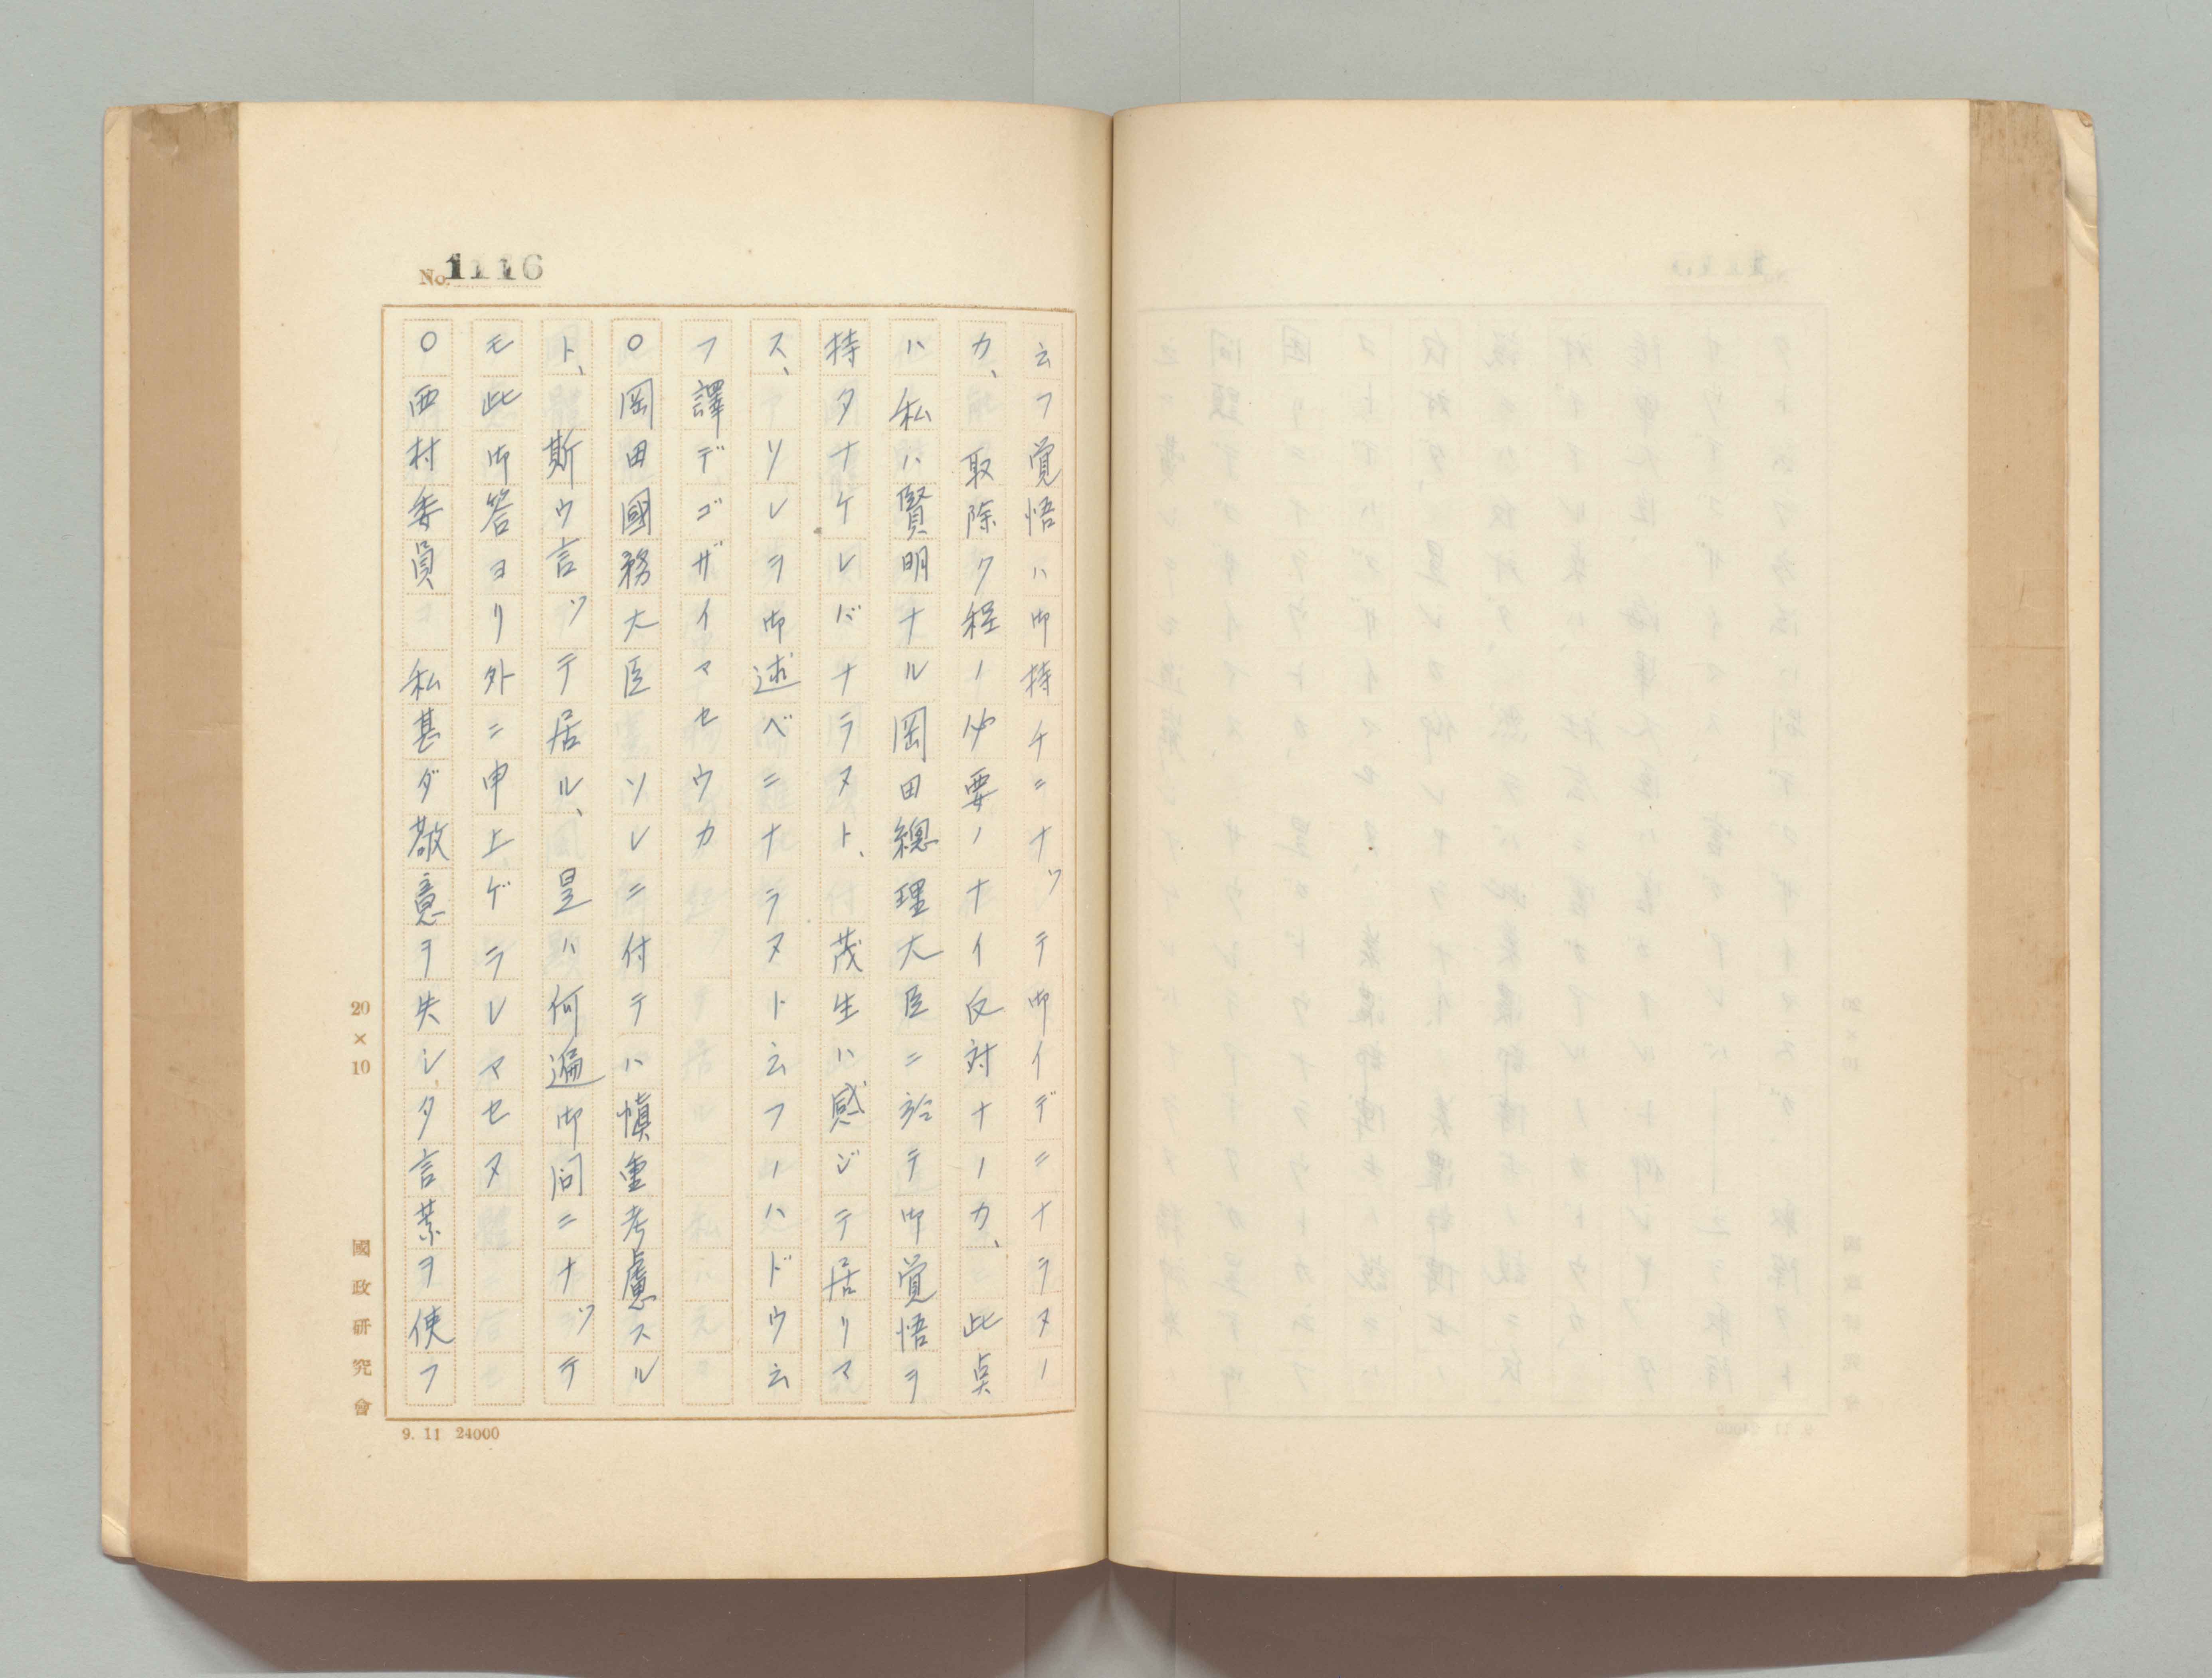 No. 1116
云フ覚悟ハ御持チニナツテ御イデニナラヌノ
カ、取除ク程ノ必要ノナイ反対ナノカ、此点
ハ私ハ賢明ナル岡田總理大臣ニ於テ御覚悟ヲ
持タナケレバナラヌト、茂生ハ感ジテ居リマ
ス、ソレヲ御述ベニナラヌト云フノハドウ云
フ譯デゴザイマセウカ
〇岡田國務大臣 ソレニ付テハ愼重考慮スル
ト、斯ウ言ツテ居ル、是ハ何遍御問ニナツテ
モ此御答ヨリ外ニ申上ゲラレマセヌ
〇西村委員 私甚ダ敬意ヲ失シタ言葉ヲ使フ
20×10
國政研究會
9. 11 24000